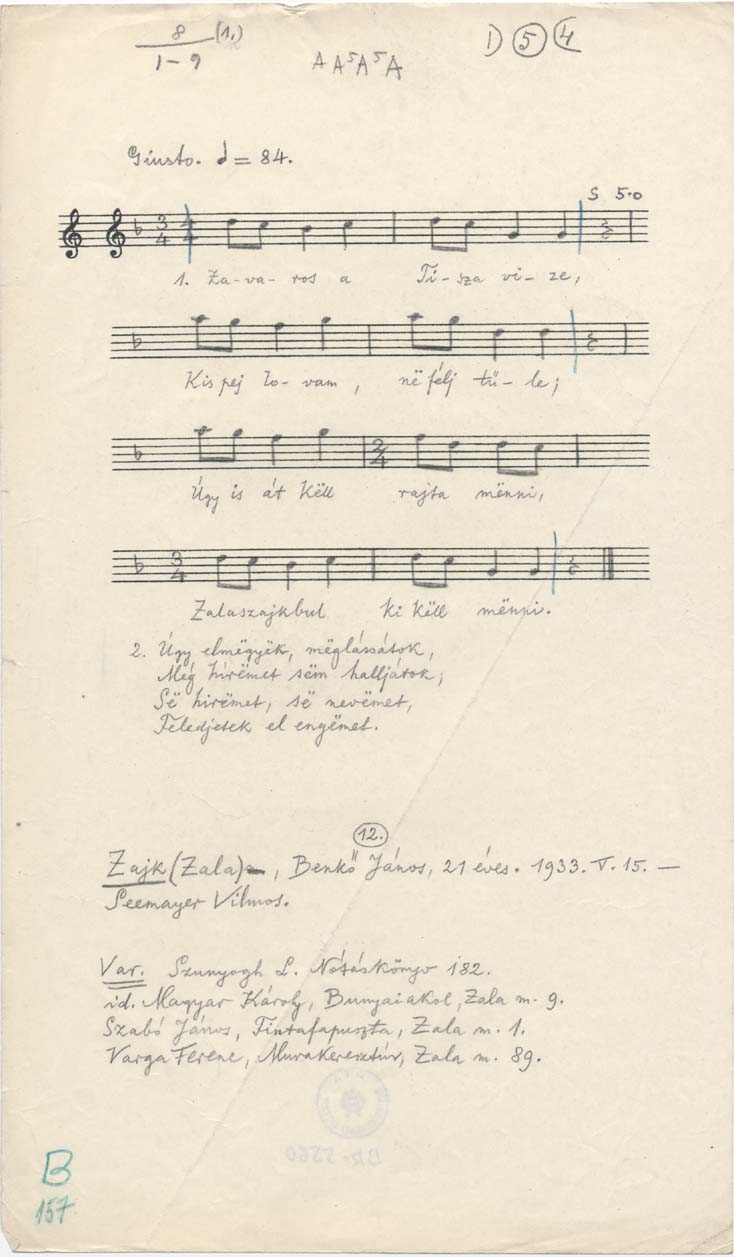 8 (1.)
1-9
A A⁵ A⁵ A
1) 5 4
Giusto. = 84.
S 5·0
3 4 4 4
1. Za-va-ros a Ti-sza vi-ze,
Kis pej lo-vam, në félj tü-le;
2 4
Úgy is át këll rajta mënni,
3 4
Zalaszajkbul ki këll mënni.
2. Úgy elmëgyëk, mëglássátok,
Még hirëmet sëm halljátok;
Së hirëmet, së nevëmet,
Feledjetek el engëmet.
12.
Zajk (Zala), Benkő János, 21 éves. 1933. V. 15. —
Seemayer Vilmos.
Var. Szunyogh L. Nótáskönyv 182.
id. Magyar Károly, Bunyaiakol, Zala m. 9.
Szabó János, Tintafapuszta, Zala m. 1.
Varga Ferenc, Murakeresztúr, Zala m. 89.
B
157